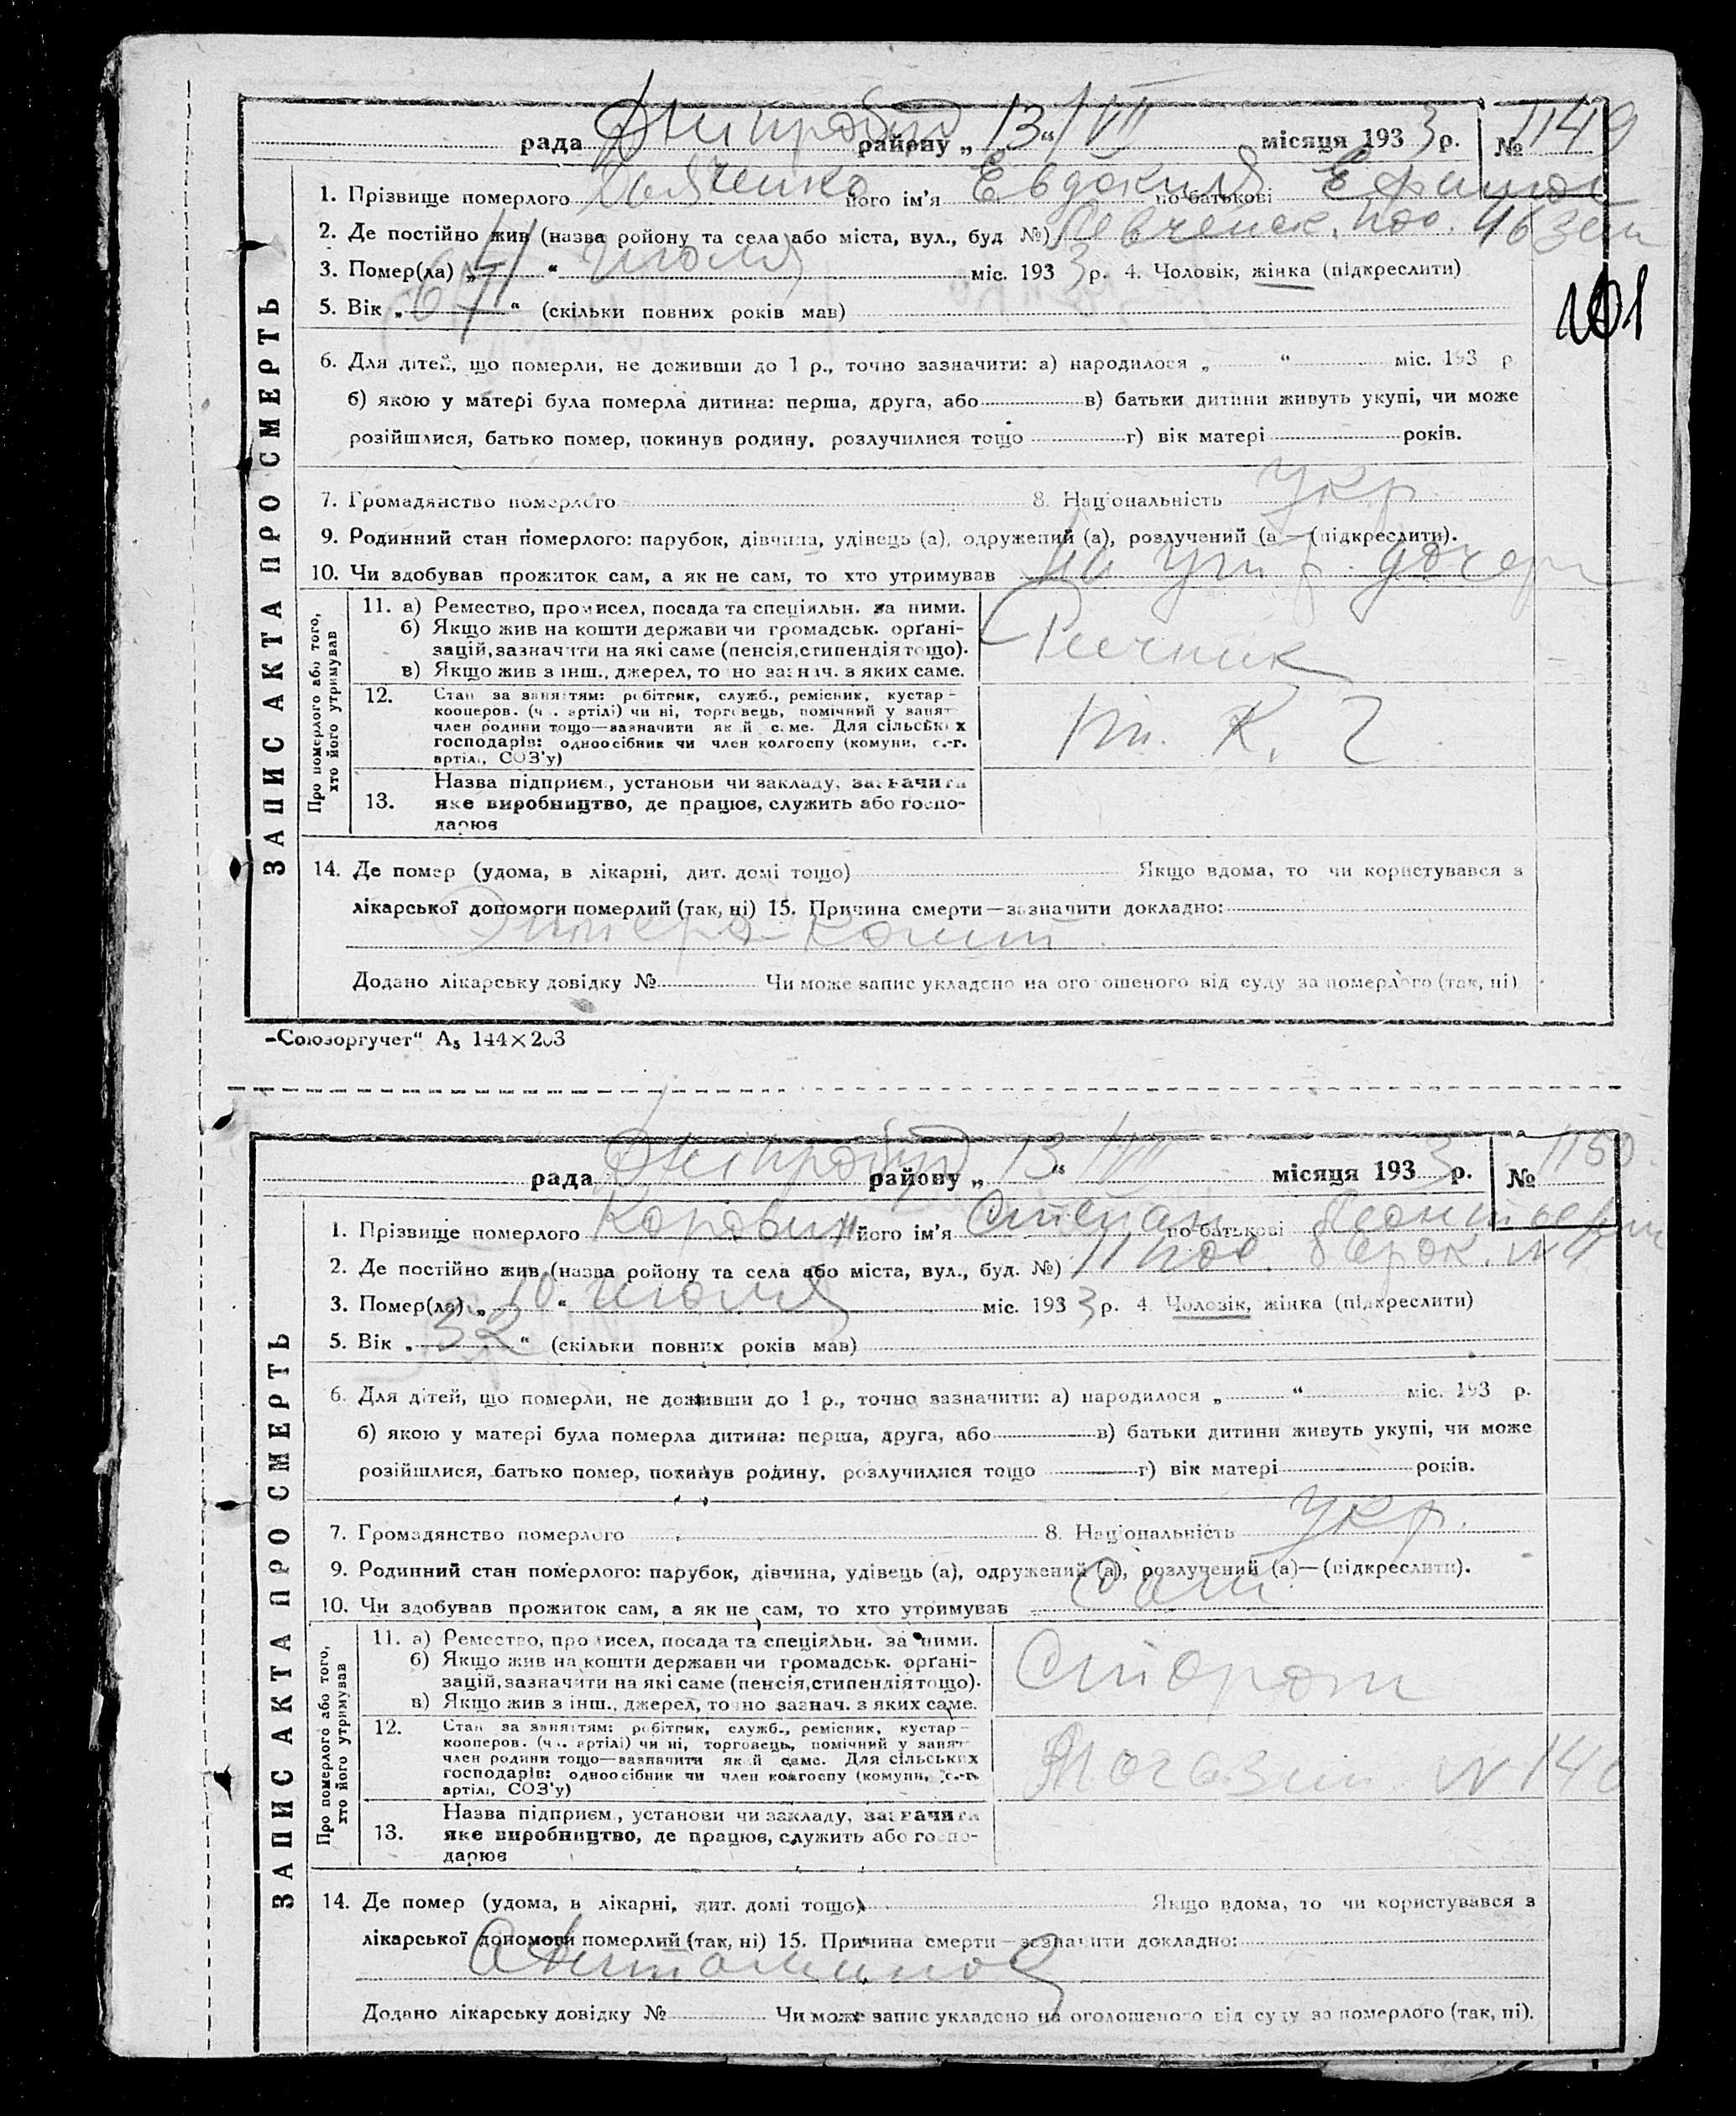 рада Дніпробуд району „13“ VII місяця 1933 р. № 1149
1. Прізвище померлого його ім'я Евдокия по-батькові
2. Де постійно жив (назва ройону та села або міста, вул., буд №) пос. 46
3. Помер(ла) „11“ июля міс. 1933 р. 4. Чоловік, жінка (підкреслити)
5. Вік „67“ (скільки повних років мав)
101
6. Для дітей, що померли, не доживши до 1 р., точно зазначити: а) народилося „ “ міс. 193 р
б) якою у матері була померла дитина: перша, друга, або в) батьки дитини живуть укупі, чи може
розійшлися, батько помер, покинув родину, розлучилися тощо г) вік матері років.
7. Громадянство померлого 8. Національність укр
9. Родинний стан померлого: парубок, дівчина, удівець (а), одружений (а), розлучений (а — (підкреслити).
10. Чи здобував прожиток сам, а як не сам, то хто утримував на
ЗАПИС АКТА ПРО СМЕРТЬ
Про померлого або того, хто його утримував
11. а) Ремество, промисел, посада та спеціяльн. за ними.
б) Якщо жив на кошти держави чи громадськ. орґані-
зацій, зазначити на які саме (пенсія, стипендія тощо).
в) Якщо жив з інш., джерел, точно зазнач. з яких саме.
12. Стан за заняттям: робітник, служб., ремісник, кустар –
кооперов. (чл. артілі) чи ні, торговець, помічний у занят
член родини тощо—зазначити який саме. Для сільських
господарів: одноосібник чи член колгоспу (комуни, с.-г.
артілі, СОЗ'у)
13. Назва підприєм., установи чи закладу, зазначити
яке виробництво, де працює, служить або госпо-
дарює
14. Де помер (удома, в лікарні, дит. домі тощо) Якщо вдома, то чи користувався з
лікарської допомоги померлий (так, ні) 15. Причина смерти—зазначити докладно:
Додано лікарську довідку № Чи може запис укладено на оголошеного від суду за померлого (так, ні)
-Союзоргучет“ А5 144×203
рада Дніпробуд району „13“ VII місяця 1933 р. № 1150
1. Прізвище померлого Коровин його ім'я Степан по-батькові
2. Де постійно жив (назва ройону та села або міста, вул., буд. №) 11 пос. барок. № 4
3. Помер(ла) „10“ июля міс. 1933 р. 4 Чоловік, жінка (підкреслити)
5. Вік „32“ (скільки повних років мав)
6. Для дітей, що померли, не доживши до 1 р., точно зазначити: а) народилося „ “ міс. 193 р.
б) якою у матері була померла дитина: перша, друга, або в) батьки дитини живуть укупі, чи може
розійшлися, батько помер, покинув родину, розлучилися тощо г) вік матері років.
7. Громадянство померлого 8. Національність укр.
9. Родинний стан померлого: парубок, дівчина, удівець (а), одружений (а), розлучений (а)—(підкреслити).
10. Чи здобував прожиток сам, а як не сам, то хто утримував сам
ЗАПИС АКТА ПРО СМЕРТЬ
Про померлого або того, хто його утримував
11. а) Ремество, промисел, посада та спеціяльн. за ними.
б) Якщо жив на кошти держави чи громадськ. орґані-
зацій, зазначити на які саме (пенсія, стипендія тощо).
в) Якщо жив з інш., джерел, точно зазнач. з яких саме.
Сторож
12. Стан за заняттям: робітник, служб., ремісник, кустар –
кооперов. (чл. артілі) чи ні, торговець, помічний у занят
член родини тощо—зазначити який саме. Для сільських
господарів: одноосібник чи член колгоспу (комуни, с.-г.
артілі, СОЗ'у)
Магазин
13. Назва підприєм., установи чи закладу, зазначити
яке виробництво, де працює, служить або госпо-
дарює
14. Де помер (удома, в лікарні, дит. домі тощо) Якщо вдома, то чи користувався з
лікарської допомоги померлий (так, ні) 15. Причина смерти—зазначити докладно:
Авитаминоз
Додано лікарську довідку № Чи може запис укладено на оголошеного від суду за померлого (так, ні).